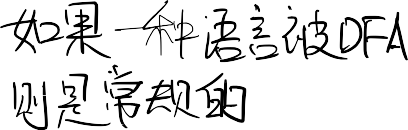 如果一种语言被DFA
则是常规的